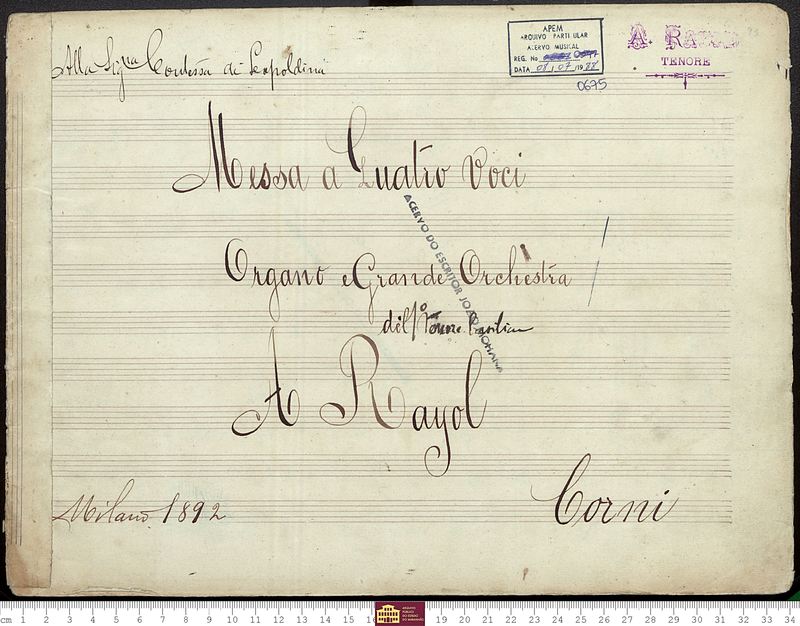 Alla Signa Contessa di Leopoldina
APEM
ARQUIVO PARTICULAR
ACERVO MUSICAL
REG. No
DATA 08 / 07 / 19 88
0675
A. RAYOL
TENORE
Messa a Quatro Voci
Organo e Grande Orchestra
ACERVO DO ESCRITOR JOÃO MOHANA
del 1º
A Rayol
Milano 1892
Corni
cm 1 2 3 4 5 6 7 8 9 10 11 12 13 14 15 16 20 21 22 23 24 25 26 27 28 29 30 31 32 33 34
ARQUIVO
PÚBLICO
DO ESTADO
DO MARANHÃO